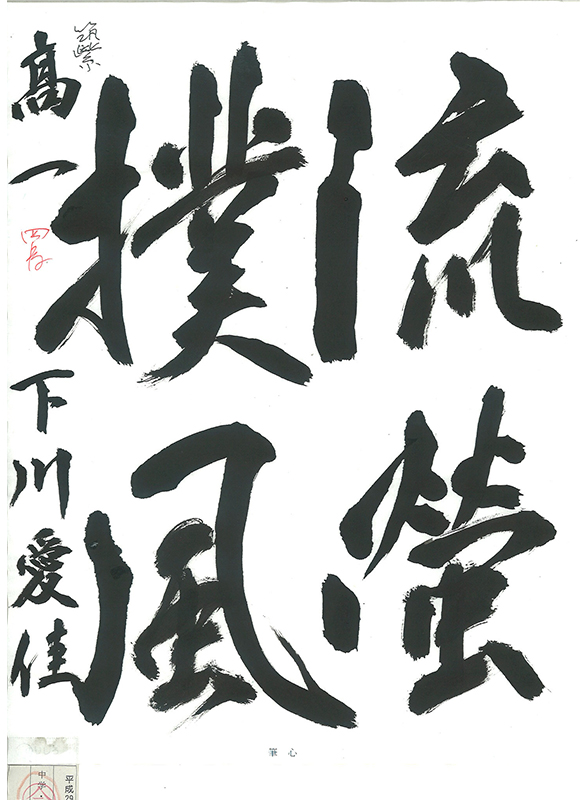 流螢
撲風
筑紫
高一 下川愛佳
筆心
平成29
中学・